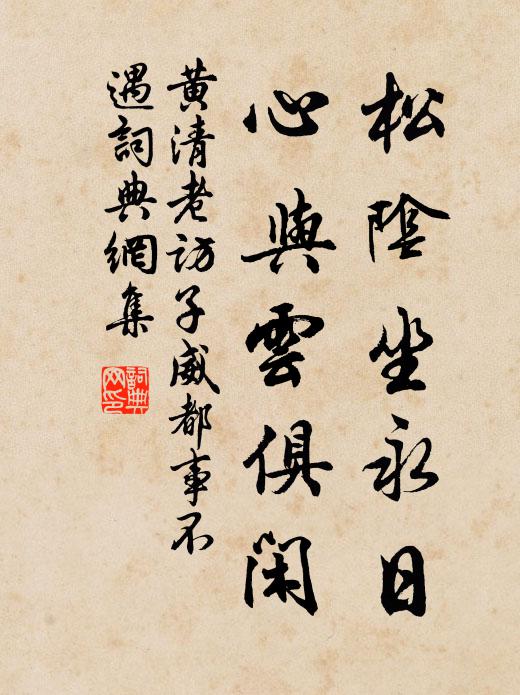 松陰坐永日
心與雲俱閑
黃清老訪子威都事不
遇詞典網集
詞典
网印